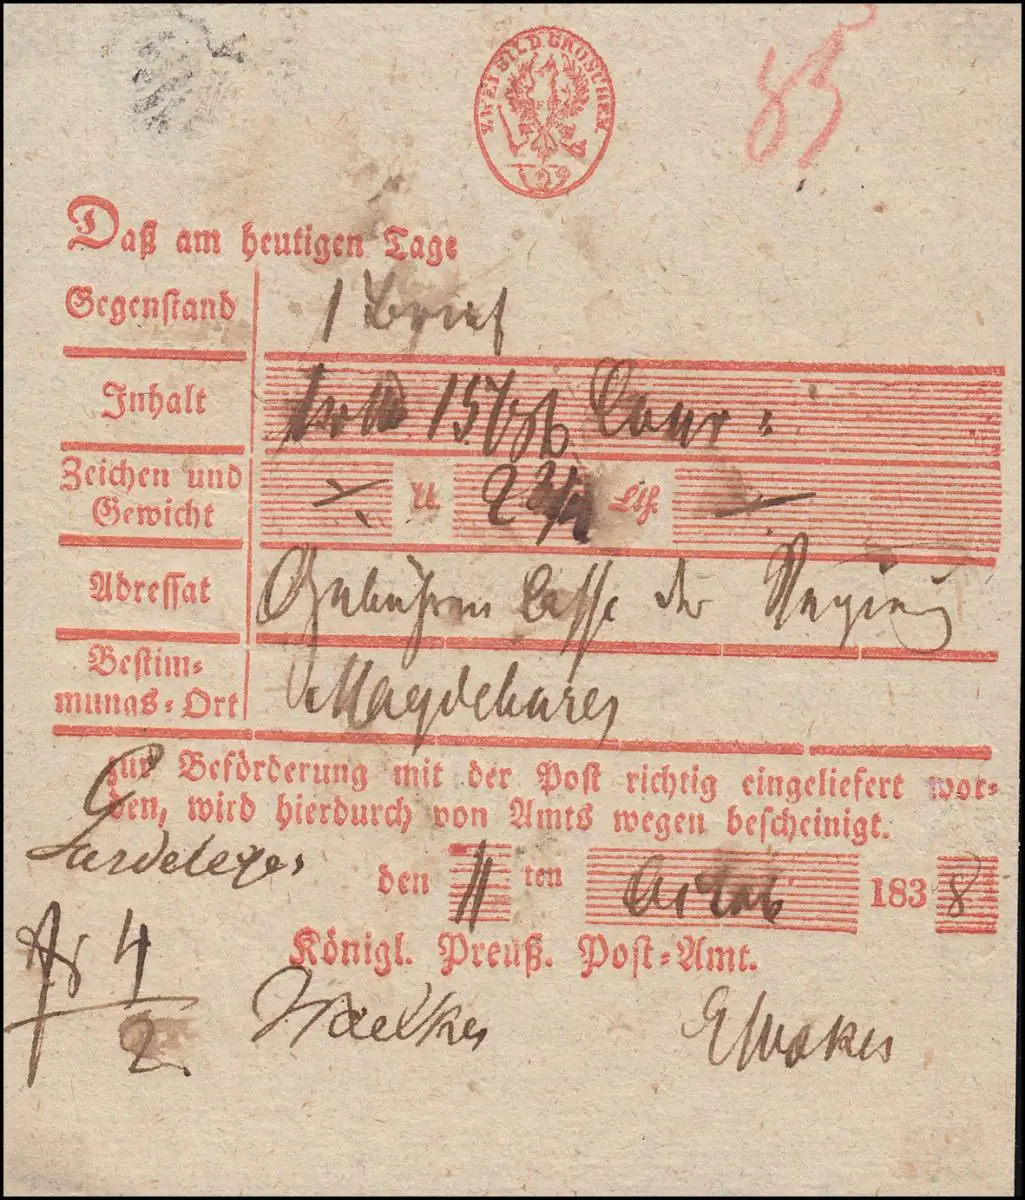 ZWEI SILB GROSCHEN
2
83
Daß am heutigen Tage
Gegenstand 1 Brief
Inhalt 15 Cour:
Zeichen und
Gewicht ℔. 2 Lth.
Adressat Gebühren Casse der
Bestim-
mungs-Ort Magdeburg
zur Beförderung mit der Post richtig eingeliefert wor-
den, wird hierdurch von Amts wegen bescheinigt.
Gardelegen
den 11 ten October 1838
Königl. Preuß. Post-Amt.
4
2.